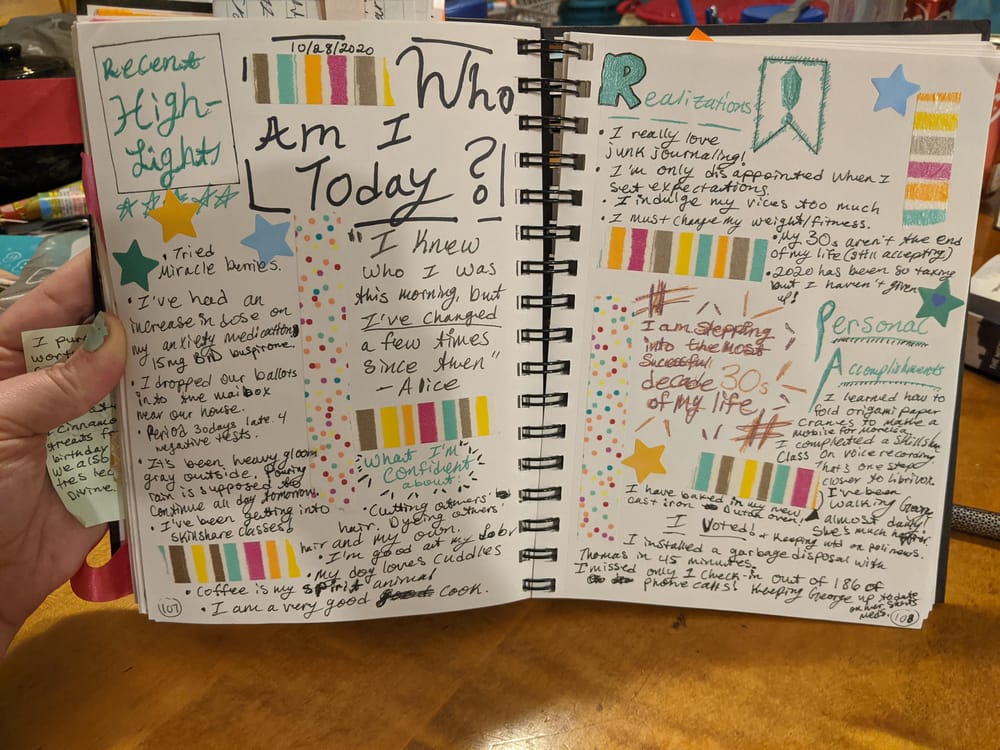 Recent
High-
Lights
10/28/2020
Who
Am I
Today?!
• Tried
Miracle berries.
• I've had an
increase in dose on
my anxiety medication
15mg BID buspirone.
• I dropped our ballots
into the mailbox
near our house.
Period 30days late. 4
negative tests.
• It's been heavy gloom
gray outside. Pouring
rain is supposed to
continue all day tomorrow.
• I've been getting into
skillshare classes!
"I Knew
who I was
this morning, but
I've changed
a few times
since then"
- Alice
What I'm
confident
about!
• Cutting others'
hair. Dyeing others'
hair and my own.
• I'm good at my job
• my dog loves cuddles
• Coffee is my spirit animal
• I am a very good cook.
107
Realizations
• I really love
junk journaling!
• I'm only disappointed when I
set expectations.
• I indulge my vices too much
• I must change my weight/fitness.
• My 30s aren't the end
of my life (still accepting)
• 2020 has been so taxing
but I haven't given
up!
I am stepping
into the most
successful
decade 30s
of my life
Personal
Accomplishments
I learned how to
fold origami paper
cranes to make a
mobile for
I completed a Skillshare
Class on voice recording
That's one step
closer to librivox.
I've been
walking George
almost daily!
She's much happier
I have baked in my new
cast iron Dutch oven!
I Voted! + Keeping utd on pol. news.
I installed a garbage disposal with
Thomas in 45 minutes.
I missed only 1 check-in out of 186 of
phone calls! Keeping George up to date
on her shots
meds.
108
I pur
wor
Cinnamo
greats f
birthday
We als
tres lec
Divine.